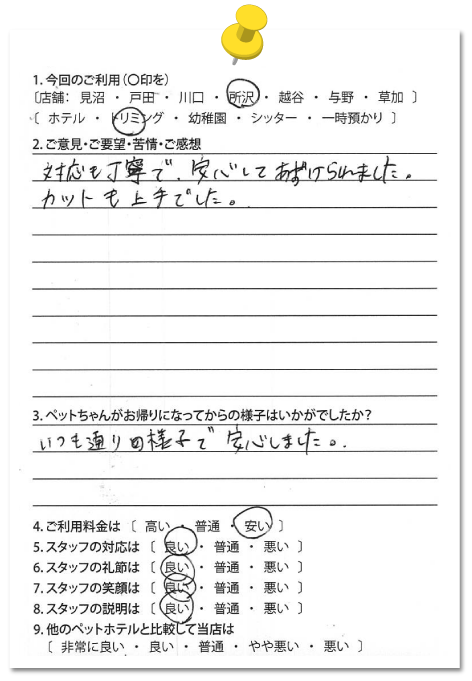 1. 今回のご利用（〇印を）
〔店舗： 見沼 ・ 戸田 ・ 川口 ・ 所沢 ・ 越谷 ・ 与野 ・ 草加 〕
〔 ホテル ・ トリミング ・ 幼稚園 ・ シッター ・ 一時預かり 〕
2. ご意見・ご要望・苦情・ご感想
対応も丁寧で、安心してあずけられました。
カットも上手でした。
3. ペットちゃんがお帰りになってからの様子はいかがでしたか？
いつも通りの様子で安心しました。
4. ご利用料金は 〔 高い ・ 普通 ・ 安い 〕
5. スタッフの対応は 〔 良い ・ 普通 ・ 悪い 〕
6. スタッフの礼節は 〔 良い ・ 普通 ・ 悪い 〕
7. スタッフの笑顔は 〔 良い ・ 普通 ・ 悪い 〕
8. スタッフの説明は 〔 良い ・ 普通 ・ 悪い 〕
9. 他のペットホテルと比較して当店は
〔 非常に良い ・ 良い ・ 普通 ・ やや悪い ・ 悪い 〕